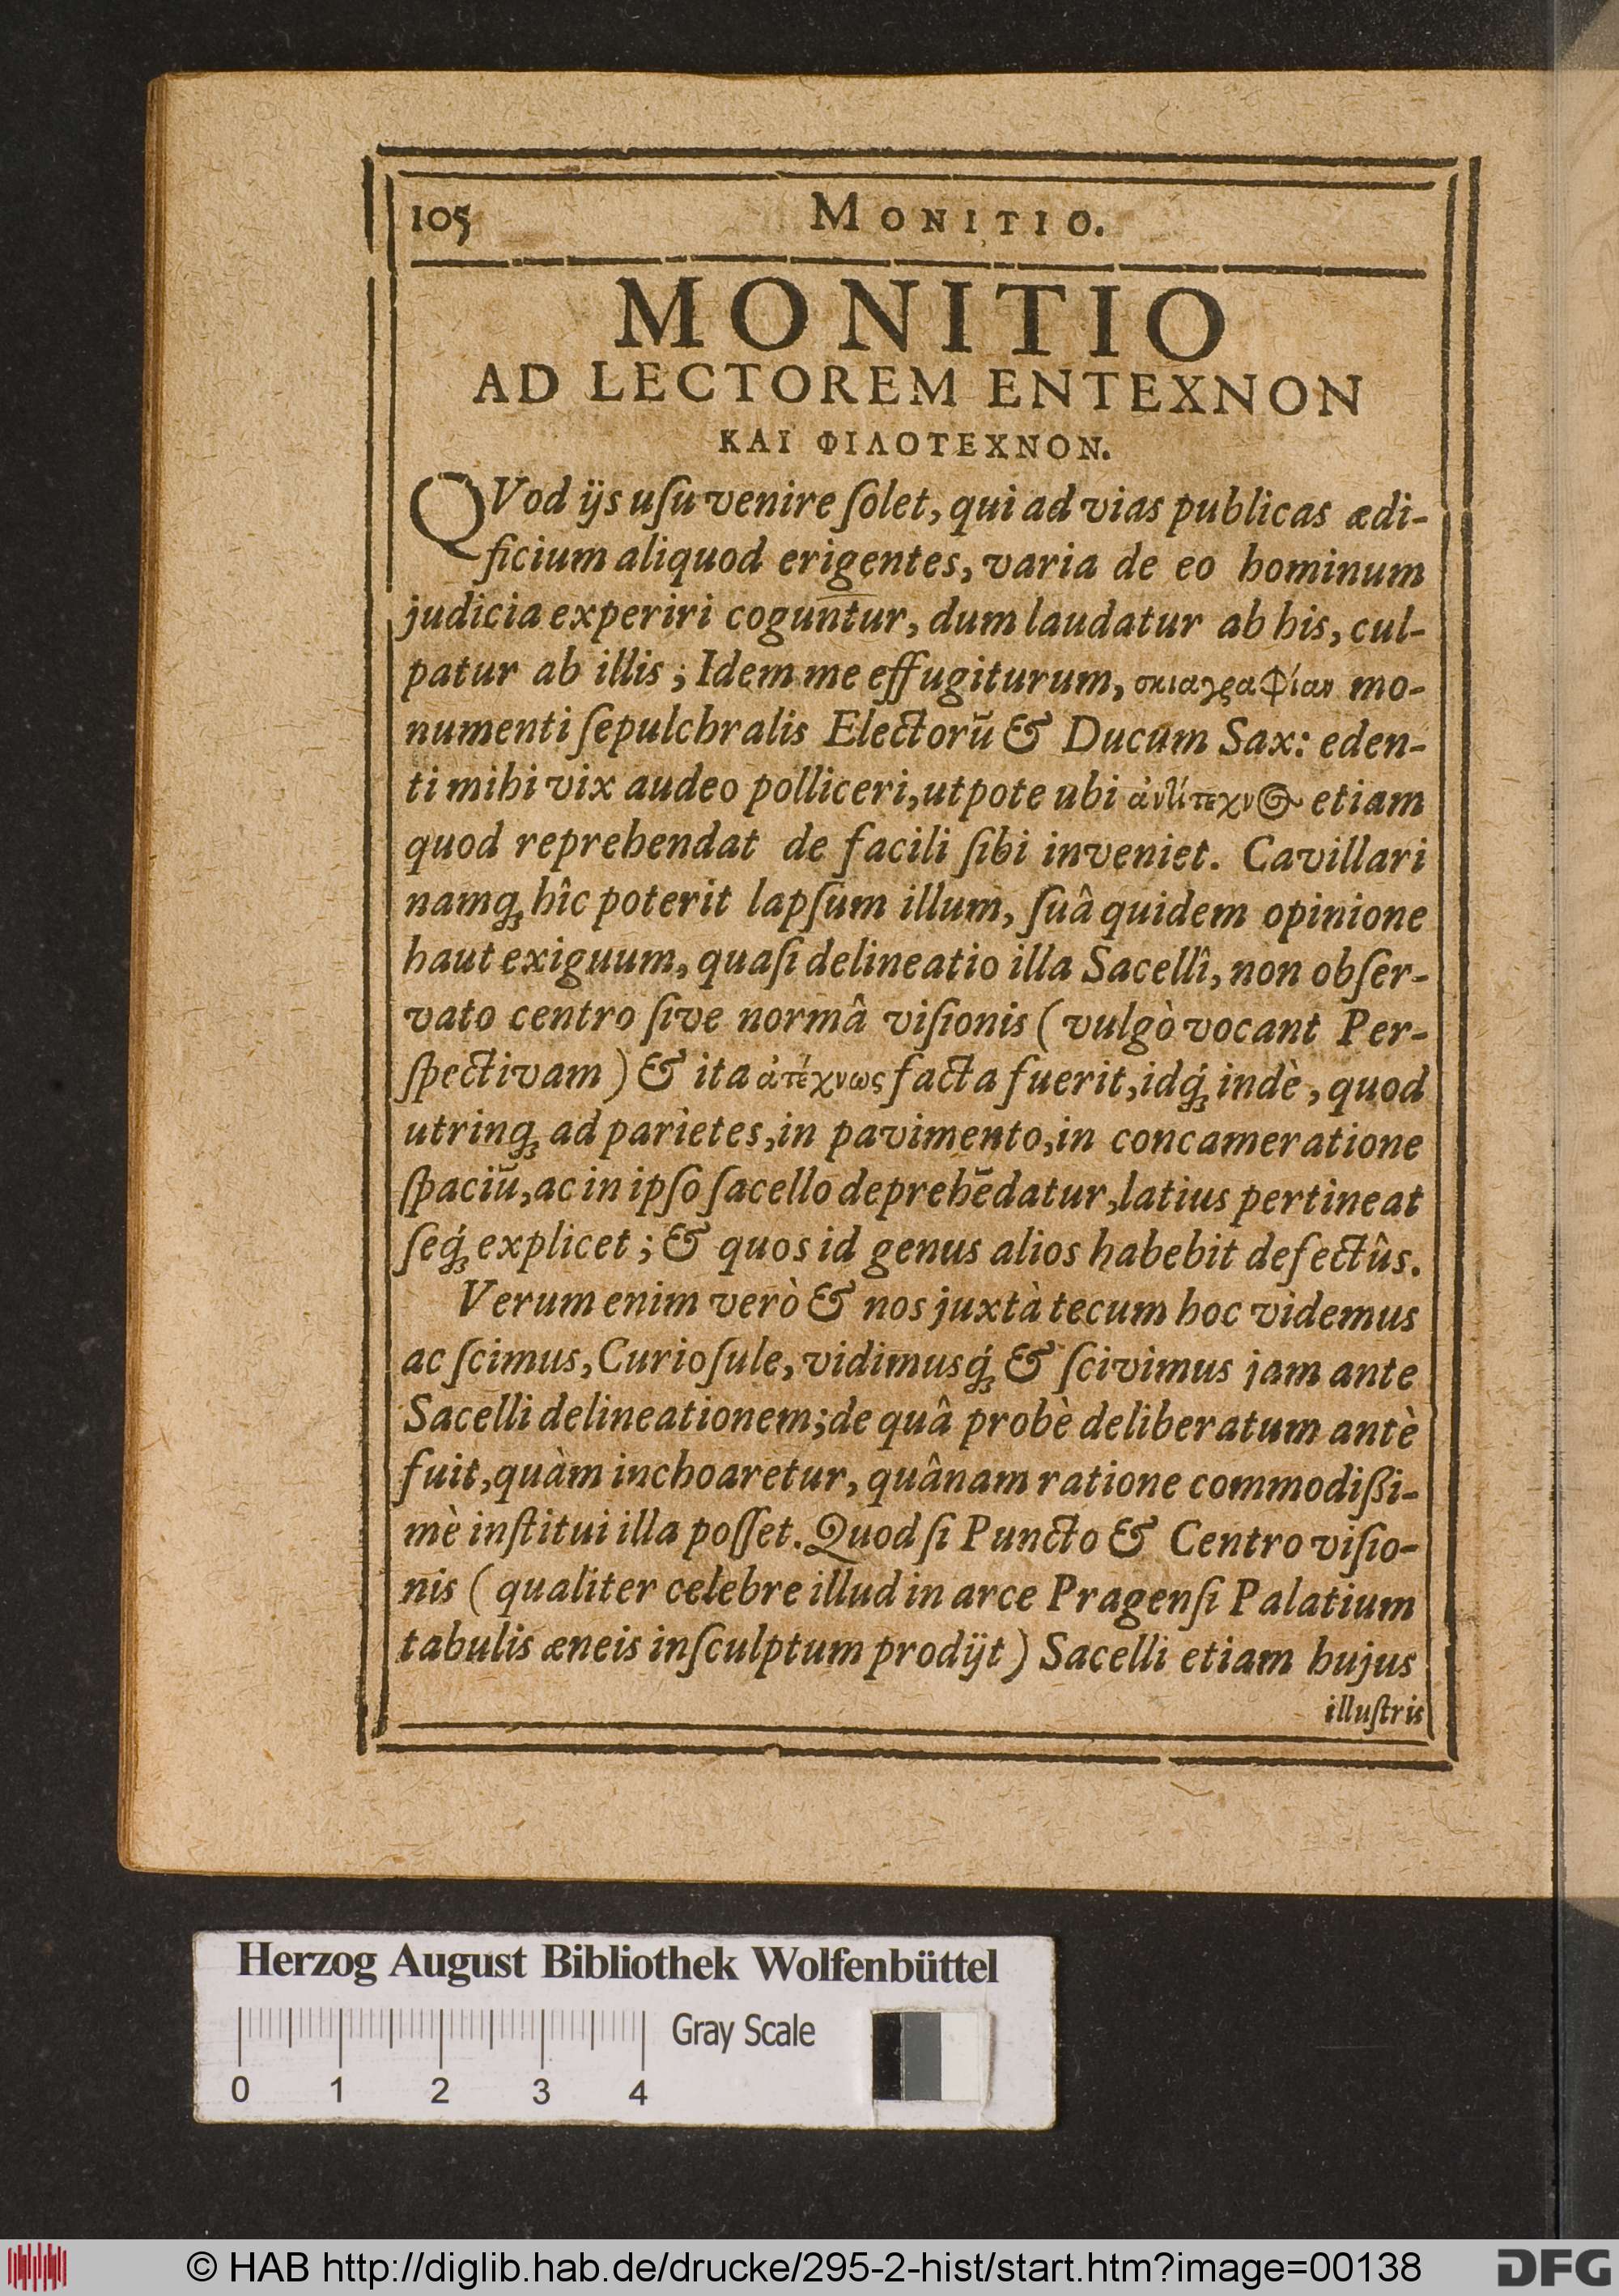 105 MONITIO.
MONITIO
AD LECTOREM ENTEXNON
ΚΑΙ ΦΙΛΟΤΕΧΝΟΝ.
QVod ijs uſu venire ſolet, qui ad vias publicas ædi-
ficium aliquod erigentes, varia de eo hominum
judicia experiri coguntur, dum laudatur ab his, cul-
patur ab illis; Idem me effugiturum, σκιαγραφίαν mo-
numenti ſepulchralis Electorũ & Ducum Sax: eden-
ti mihi vix audeo polliceri, utpote ubi ἀντίτεχνος etiam
quod reprehendat de facili ſibi inveniet. Cavillari
namq́; hîc poterit lapſum illum, ſuâ quidem opinione
haut exiguum, quaſi delineatio illa Sacelli, non obſer-
vato centro ſive normâ viſionis (vulgò vocant Per-
ſpectivam) & ita ἀτέχνως facta fuerit, idq́; indè, quod
utrinq; ad parietes, in pavimento, in concameratione
ſpaciũ, ac in ipſo ſacello deprehẽdatur, latius pertineat
ſeq́; explicet; & quos id genus alios habebit defectûs.
Verum enim verò & nos juxtà tecum hoc videmus
ac ſcimus, Curioſule, vidimusq́; & ſcivimus jam ante
Sacelli delineationem; de quâ probè deliberatum antè
fuit, quàm inchoaretur, quânam ratione commodißi-
mè inſtitui illa poſſet. Quod ſi Puncto & Centro viſio-
nis (qualiter celebre illud in arce Pragenſi Palatium
tabulis æneis inſculptum prodijt) Sacelli etiam hujus
illuſtris
Herzog August Bibliothek Wolfenbüttel
Gray Scale
0 1 2 3 4
© HAB http://diglib.hab.de/drucke/295-2-hist/start.htm?image=00138 DFG